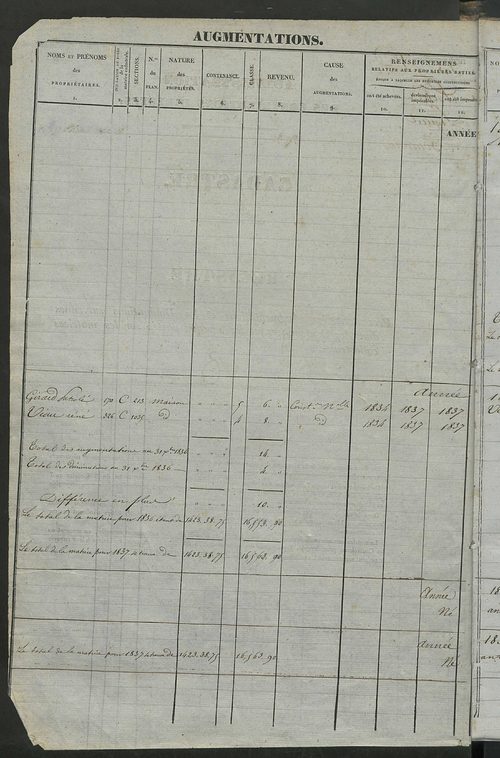 AUGMENTATIONS.
NOMS ET PRÉNOMS des PROPRIÉTAIRES. 1.
2.
SECTIONS. 3.
N.os du PLAN. 4.
NATURE des PROPRIÉTÉS. 5.
CONTENANCE. 6.
CLASSE. 7.
REVENU. 8.
CAUSE des AUGMENTATIONS. 9.
RENSEIGNEMENS
RELATIFS AUX PROPRIÉTÉS BATIES
ont été achevées. 10.
deviendront imposables. 11.
ont été imposées 12.
ANNÉE
Année
Girard 170 C 213 maison 5 6. Const.on N.lle 1834 1837 1837
Vieux réné 326 C 4 8. id 1834 1837 1837
Total des augmentations au 31 Xbre 1836 14.
Total des diminutions au 31 Xbre 1836 4.
Différence en plus 10.
Le total de la matrice pour 1836 étant de 1423.38.75 16,553.90
Le total de la matrice pour 1837 sera de 1423.38.75 16,563.90
Année
Né
Année
Le total de la matrice pour 1837 étant de 1423.38.75 16,563.90
Né